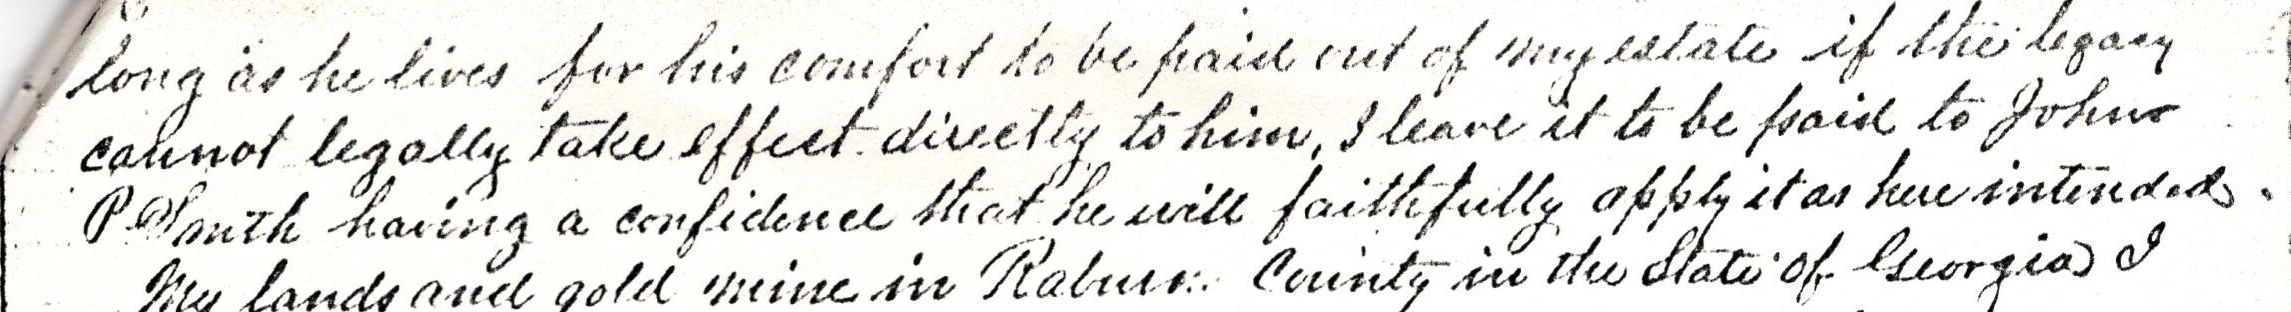 long as he lives for his comfort to be paid out of my estate if the legacy
cannot legally take effect directly to him, I leave it to be paid to John
P Smith having a confidence that he will faithfully apply it as here intended.
My lands and gold mine in Rabun County in the State of Georgia I